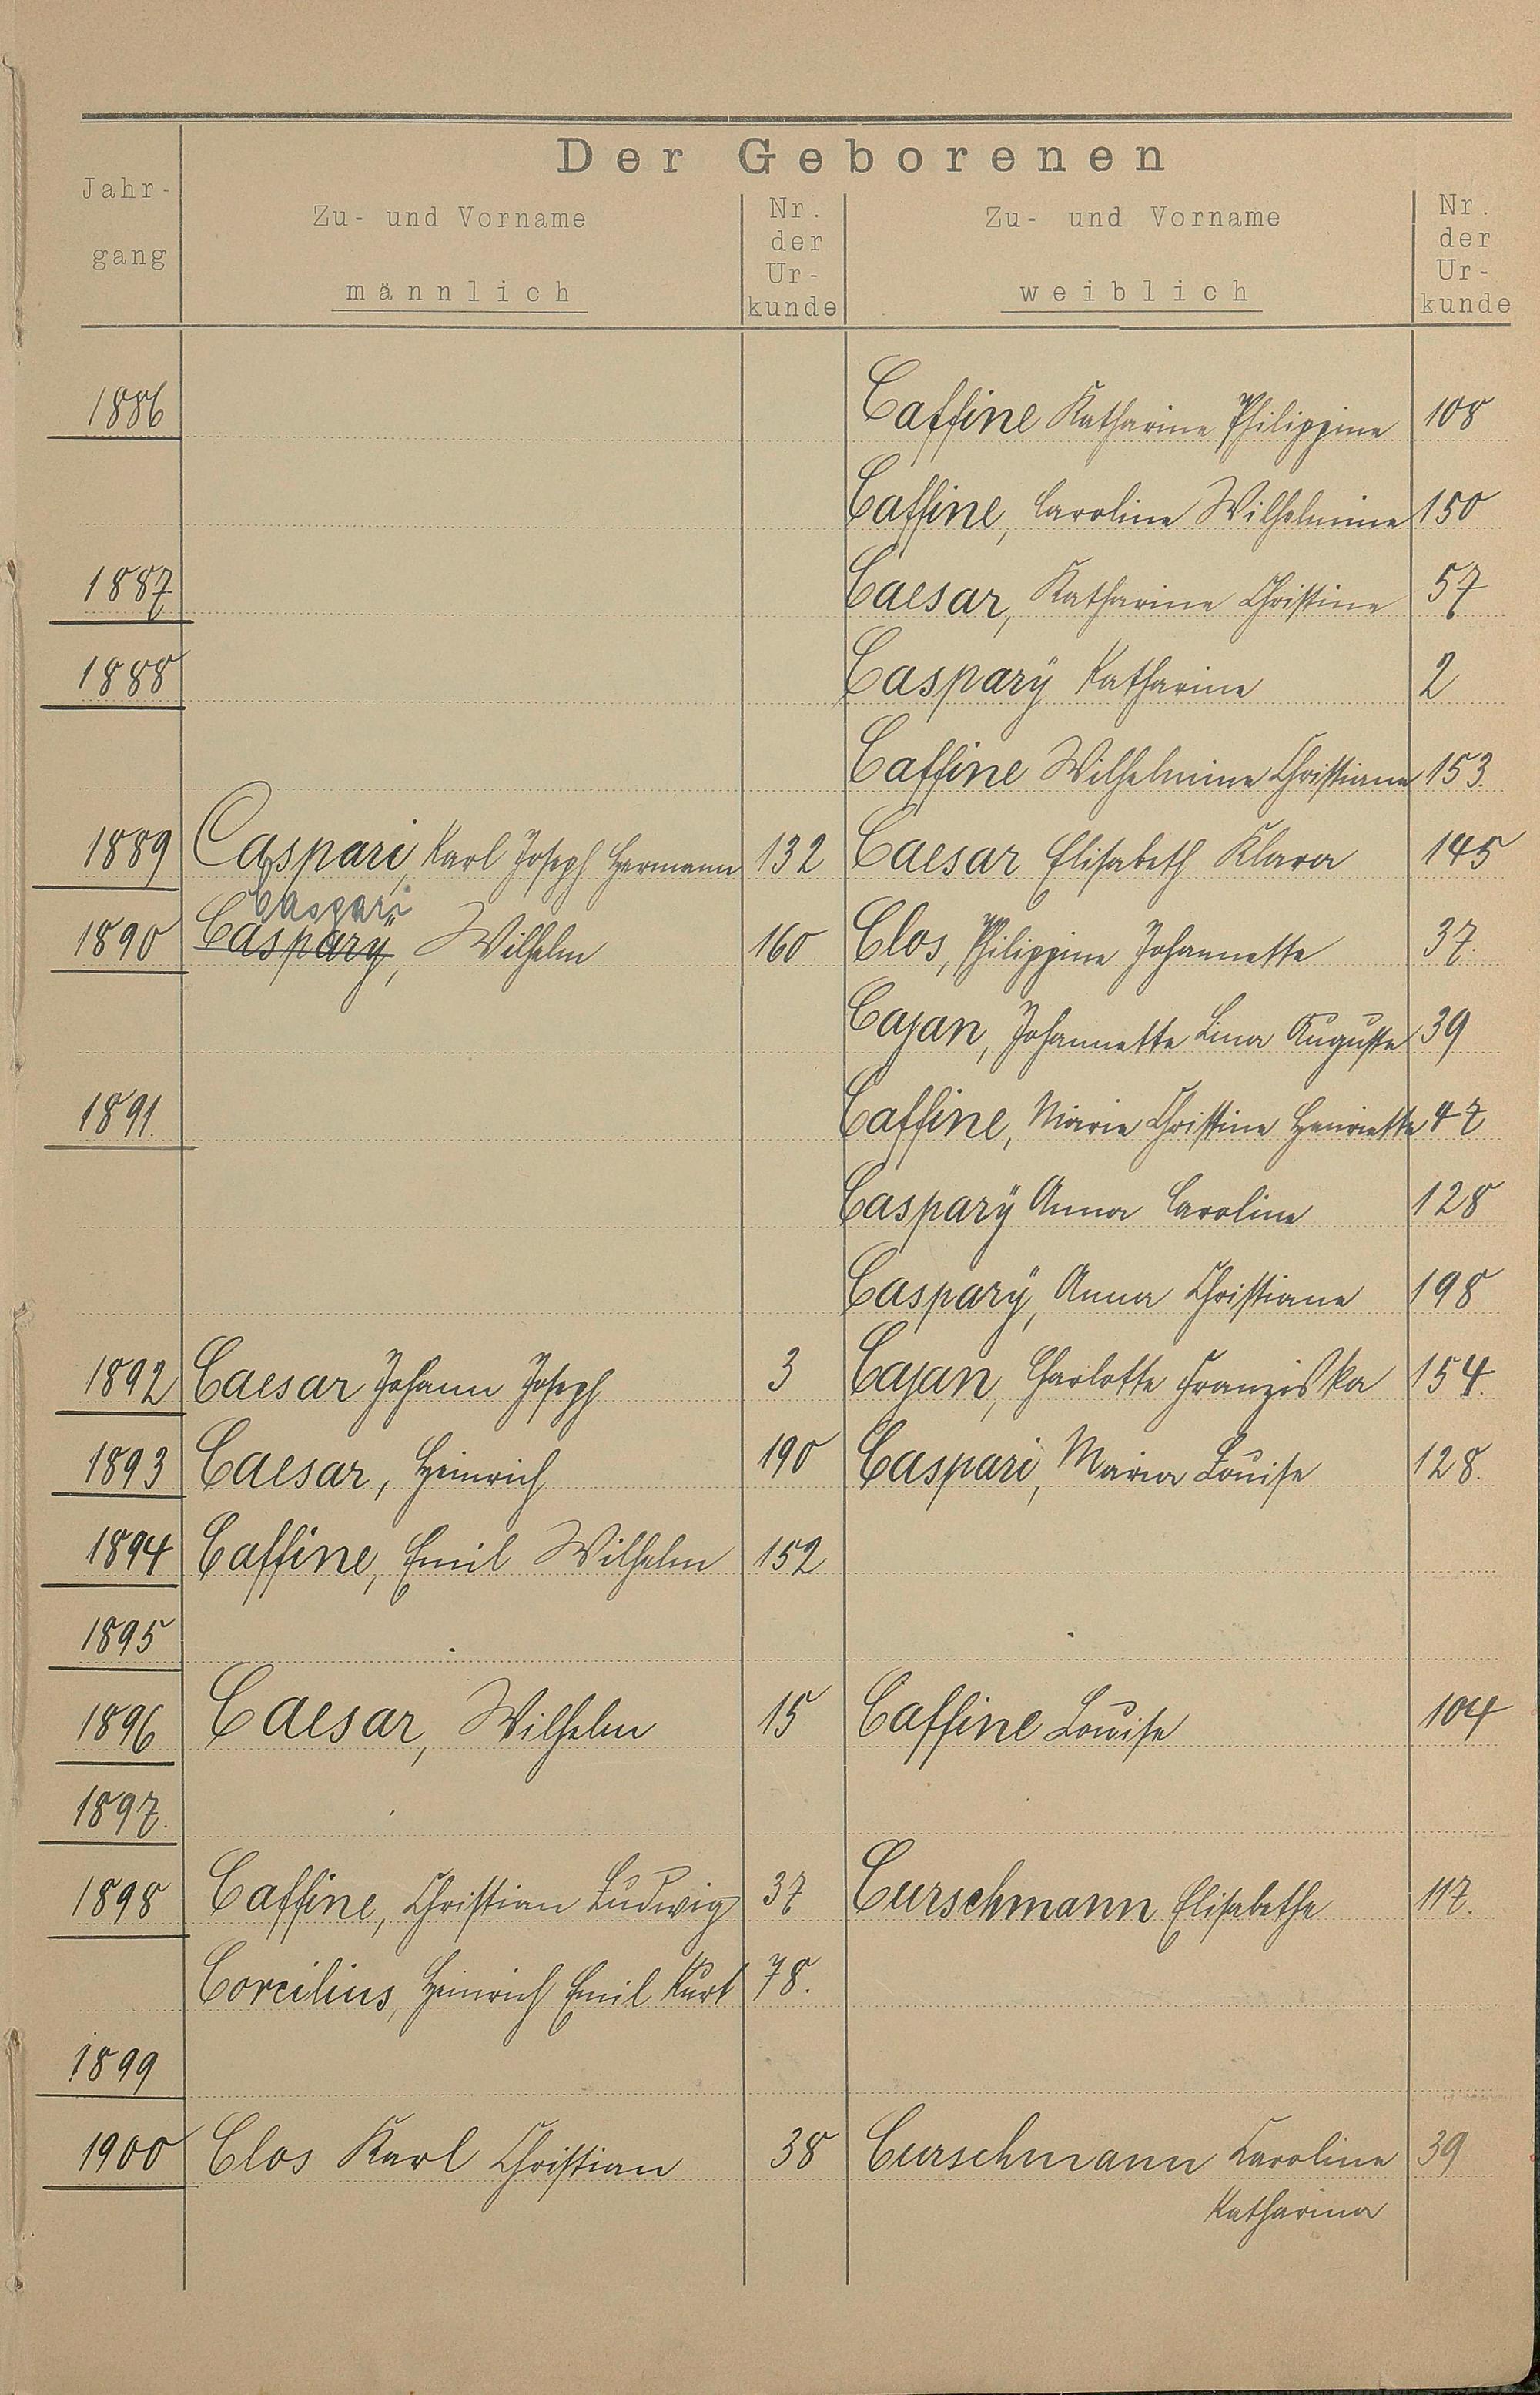 Der Geborenen
Jahr-
gang
Zu- und Vorname
männlich
Nr.
der
Ur-
kunde
Zu- und Vorname
weiblich
Nr.
der
Ur-
kunde
1886 Caffine Katharine Philippine 108
Caffine, Caroline Wilhelmine 150
1887 Caesar, Katharine Christine 57
1888 Casparÿ Katharine 2
Caffine Wilhelmine Christiane 153.
1889 Caspari, Karl Joseph Hermann 132 Caesar Elisabeth Klara 145
Caspari
1890 Casparÿ, Wilhelm 160 Clos, Philippine Johannette 37.
Cajan, Johannette Lina Auguste 39
1891. Caffine, Marie Christine Henriette 47
Casparÿ Anna Caroline 128
Casparÿ, Anna Christiane 198
1892 Caesar Johann Joseph 3 Cajan, Charlotte Franziska 154.
1893 Caesar, Heinrich 190 Caspari, Maria Louise 128.
1894 Caffine, Emil Wilhelm 152
1895
1896 Caesar, Wilhelm 15 Caffine Louise 104
1897.
1898 Caffine, Christian Ludwig 37 Curschmann Elisabethe 117.
Corcilius, Heinrich Emil Kurt 78.
1899
1900 Clos Karl Christian 38 Curschmann Caroline 39
Katharina